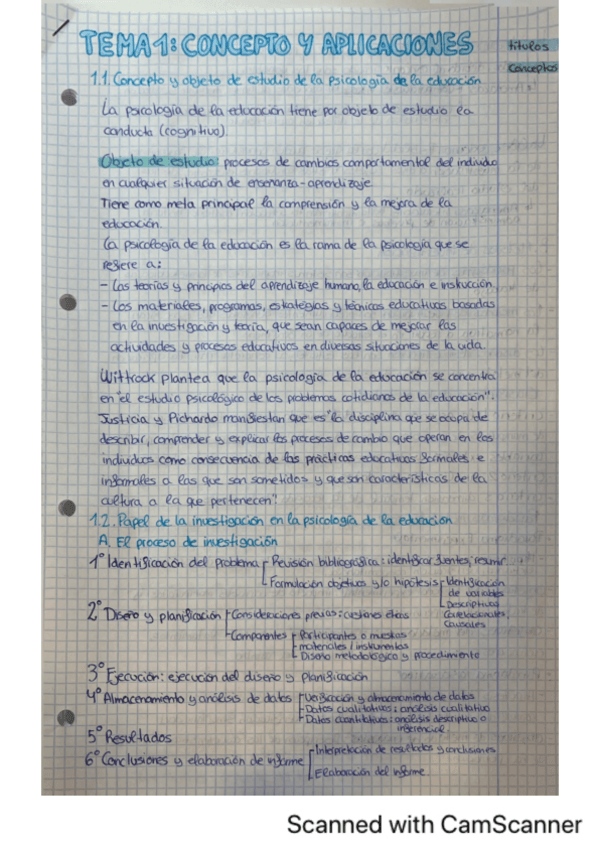 TEMA 1: CONCEPTO Y APLICACIONES
títulos
conceptos
1.1. Concepto y objeto de estudio de la psicología de la educación
La psicología de la educación tiene por objeto de estudio la
conducta (cognitivo).
Objeto de estudio: procesos de cambios comportamental del individuo
en cualquier situación de enseñanza-aprendizaje.
Tiene como meta principal la comprensión y la mejora de la
educación.
La psicología de la educación es la rama de la psicología que se
refiere a:
- Las teorías y principios del aprendizaje humano, la educación e instrucción.
- Los materiales, programas, estrategias y técnicas educativas basadas
en la investigación y teoría, que sean capaces de mejorar las
actividades y procesos educativos en diversas situaciones de la vida.
Wittrock plantea que la psicología de la educación se concentra
en "el estudio psicológico de los problemas cotidianos de la educación".
Justicia y Pichardo manifiestan que es "la disciplina que se ocupa de
describir, comprender y explicar los procesos de cambio que operan en los
individuos como consecuencia de las prácticas educativas formales e
informales a las que son sometidos y que son características de la
cultura a la que pertenecen".
1.2. Papel de la investigación en la psicología de la educación
A. El proceso de investigación
1º Identificación del problema
Revisión bibliográfica: identificar fuentes, resumir
Formulación objetivos y/o hipótesis
Identificación
de variables
Descriptivas
Correlacionales,
Causales
2º Diseño y planificación
Consideraciones previas: cuestiones éticas
Componentes
Participantes o muestras
materiales / instrumentos
Diseño metodológico y procedimiento
3º Ejecución: ejecución del diseño y planificación
4º Almacenamiento y análisis de datos
Verificación y almacenamiento de datos
Datos cualitativos: análisis cualitativo
Datos cuantitativos: análisis descriptivo o
inferencial
5º Resultados
6º Conclusiones y elaboración de informe
Interpretación de resultados y conclusiones
Elaboración del informe.
Scanned with CamScanner